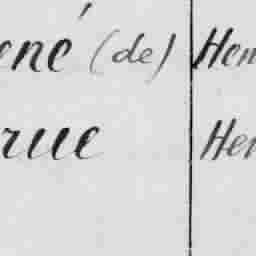 ené (de) Hen
rue Hen